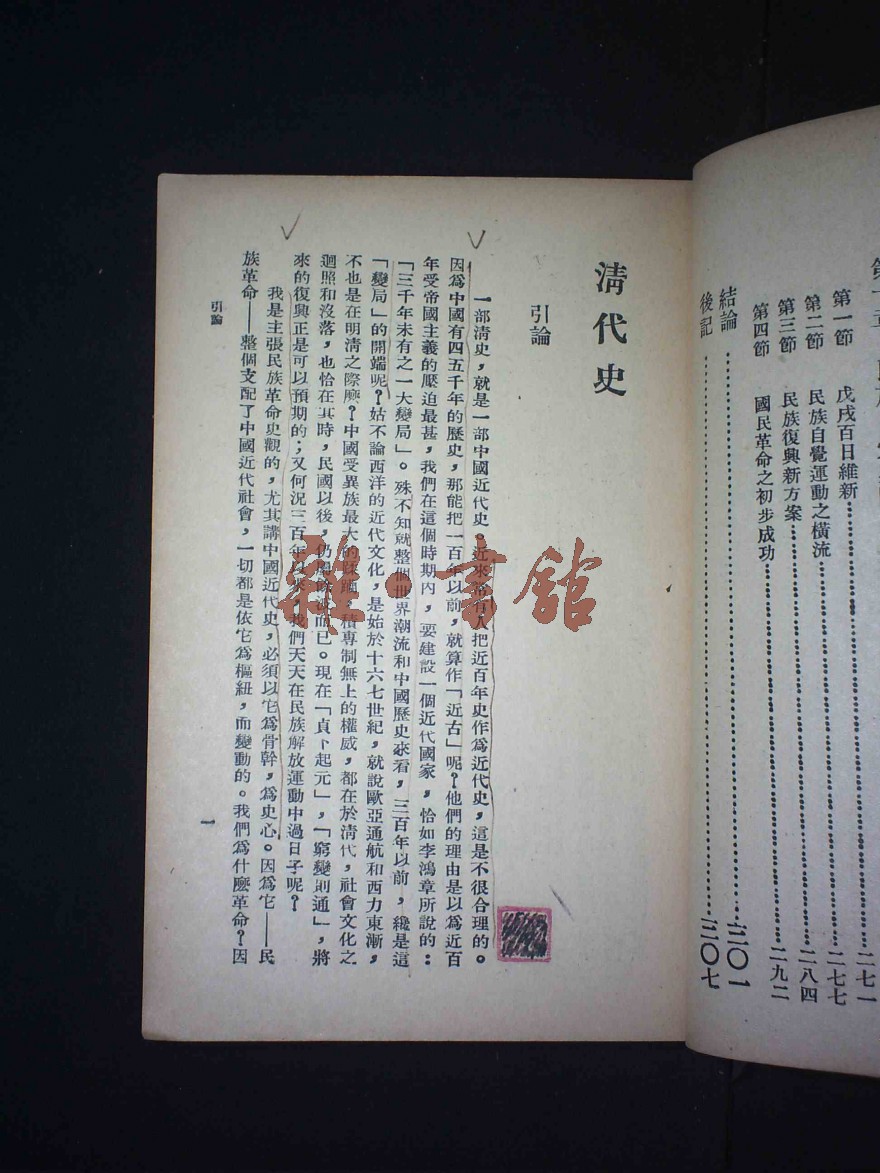 第一節　戊戌百日維新……二七一
第二節　民族自覺運動之橫流……二七七
第三節　民族復興新方案……二八四
第四節　國民革命之初步成功……二九二
結論……三〇一
後記……三〇七
清代史
引論
一部淸史，就是一部中國近代史。近來常有人把近百年史作爲近代史，這是不很合理的。
因爲中國有四五千年的歷史，那能把一百年以前，就算作「近古」呢？他們的理由是以爲近百
年受帝國主義的壓迫最甚，我們在這個時期內，要建設一個近代國家，恰如李鴻章所說的：
「三千年未有之一大變局」。殊不知就整個世界潮流和中國歷史來看，三百年以前，纔是這
「變局」的開端呢？姑不論西洋的近代文化，是始於十六七世紀，就說歐亞通航和西力東漸，
不也是在明淸之際麽？中國受異族最大的蹂躪，積專制無上的權威，都在於淸代，社會文化之
迴照和沒落，也恰在其時，民國以後，仍而已。現在「貞卜起元」，「窮變則通」，將
來的復興正是可以預期的；又何況三百年以來，我們天天在民族解放運動中過日子呢？
我是主張民族革命史觀的，尤其講中國近代史，必須以它爲骨幹，爲史心。因爲它——民
族革命——整個支配了中國近代社會，一切都是依它爲樞紐，而變動的。我們爲什麽革命？因
引論
一
雜·書館